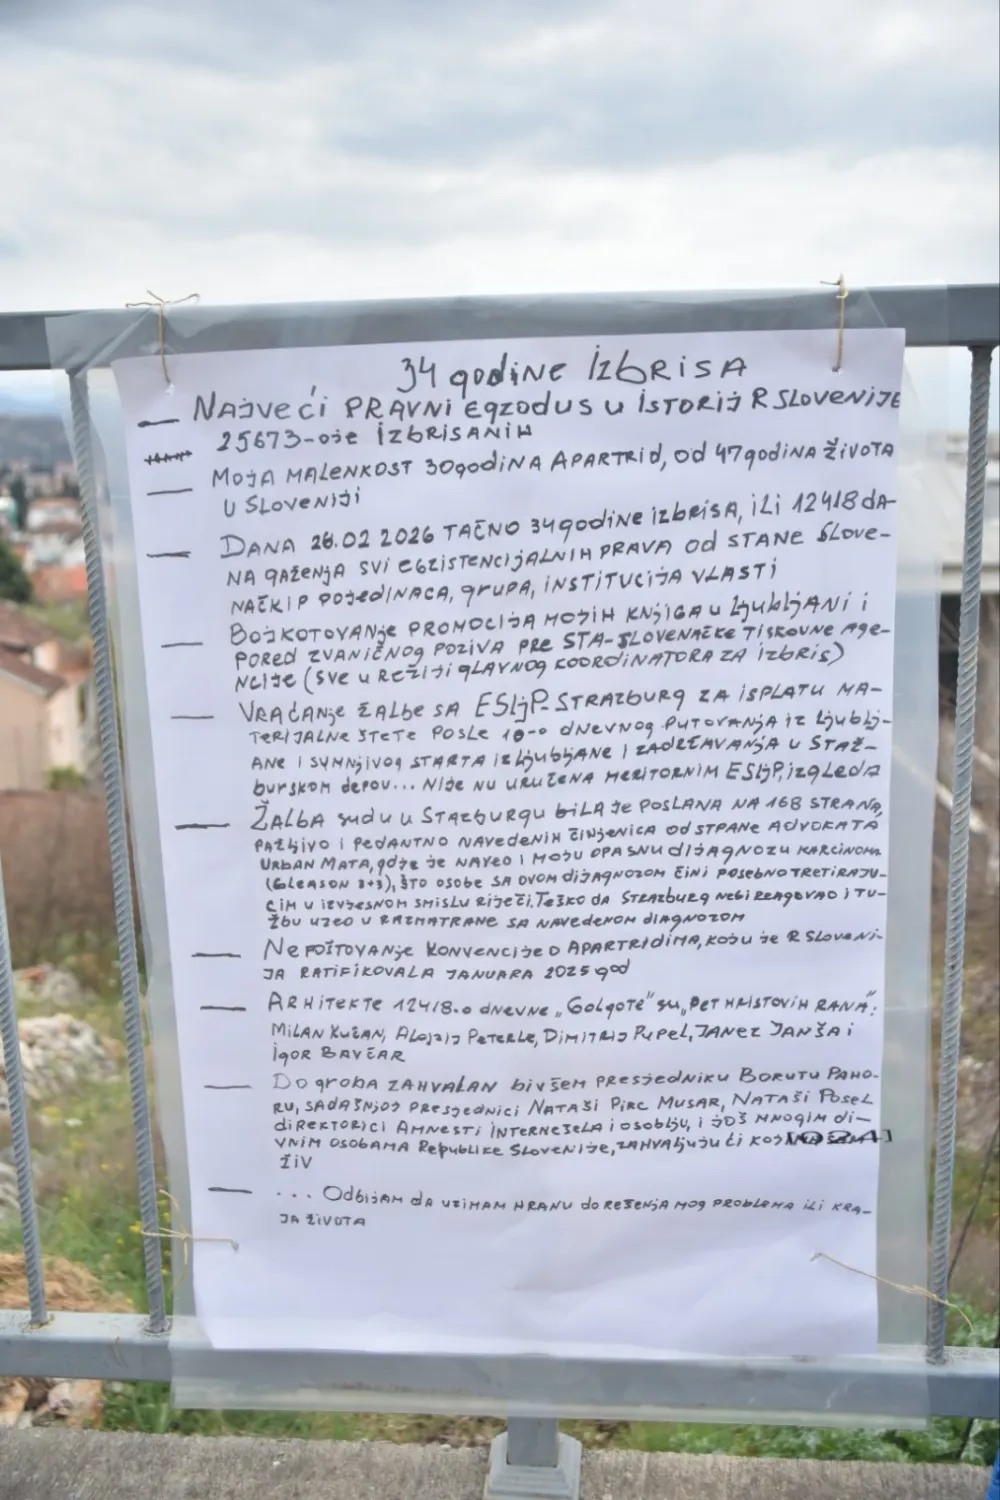 34 godine izbrisa
— Najveći pravni egzodus u istorij R Slovenije
25673-oje izbrisanih
— Moja malenkost 30 godina apartrid, od 47 godina života
u Sloveniji
— Dana 26.02 2026 tačno 34 godine izbrisa, ili 12418 da-
na gaženja svi egzistencijalnih prava od stane slove-
načkip pojedinaca, grupa, institucija vlasti
— Bojkotovanje promocija mojih knjiga u Ljubljani i
pored zvaničnog poziva pre STA-slovenačke tiskovne age-
ncije (sve u režiji glavnog koordinatora za izbris)
— Vraćanje žalbe sa ESLjP. Strazburg za isplatu ma-
terijalne štete posle 10-o dnevnog putovanja iz Ljublj-
ane i sumnjivog starta iz Ljubljane i zadržavanja u Staž-
burskom depou... Nije nu uručena meritornim ESLjP, izgleda
— Žalba sudu u Stazburgu bila je poslana na 168 strana,
pažljivo i pedantno navedenih činjenica od stpane advokata
Urban Mata, gdje je naveo i moju opasnu dijagnozu karcinoma
(Gleason 3+3), što osobe sa ovom dijagnozom čini posebno tretiraju-
cim u izvjesnom smislu riječi. Teško da Strazburg nebi reagovao i tu-
žbu uzeo u razmatrane sa navedenom diagnozom
— Nepoštovanje konvencije o apartridima, koju je R Sloveni-
ja ratifikovala januara 2025 god
— Arhitekte 12418-o dnevne „Golgote" su „pet Hristovih rana":
Milan Kučan, Alojzij Peterle, Dimitrij Pupel, Janez Janša i
Igor Bavčar
— Do groba zahvalan bivšem presjedniku Borutu Paho-
ru, sadašnjoj presjednici Nataši Pirc Musar, Nataši Posel
direktorici Amnesti Internešela i osoblju, i još mnogim di-
vnim osobama Republike Slovenije, zahvaljujući koj
živ
— ... Odbijam da uzimam hranu do rešenja mog problema ili kra-
ja života